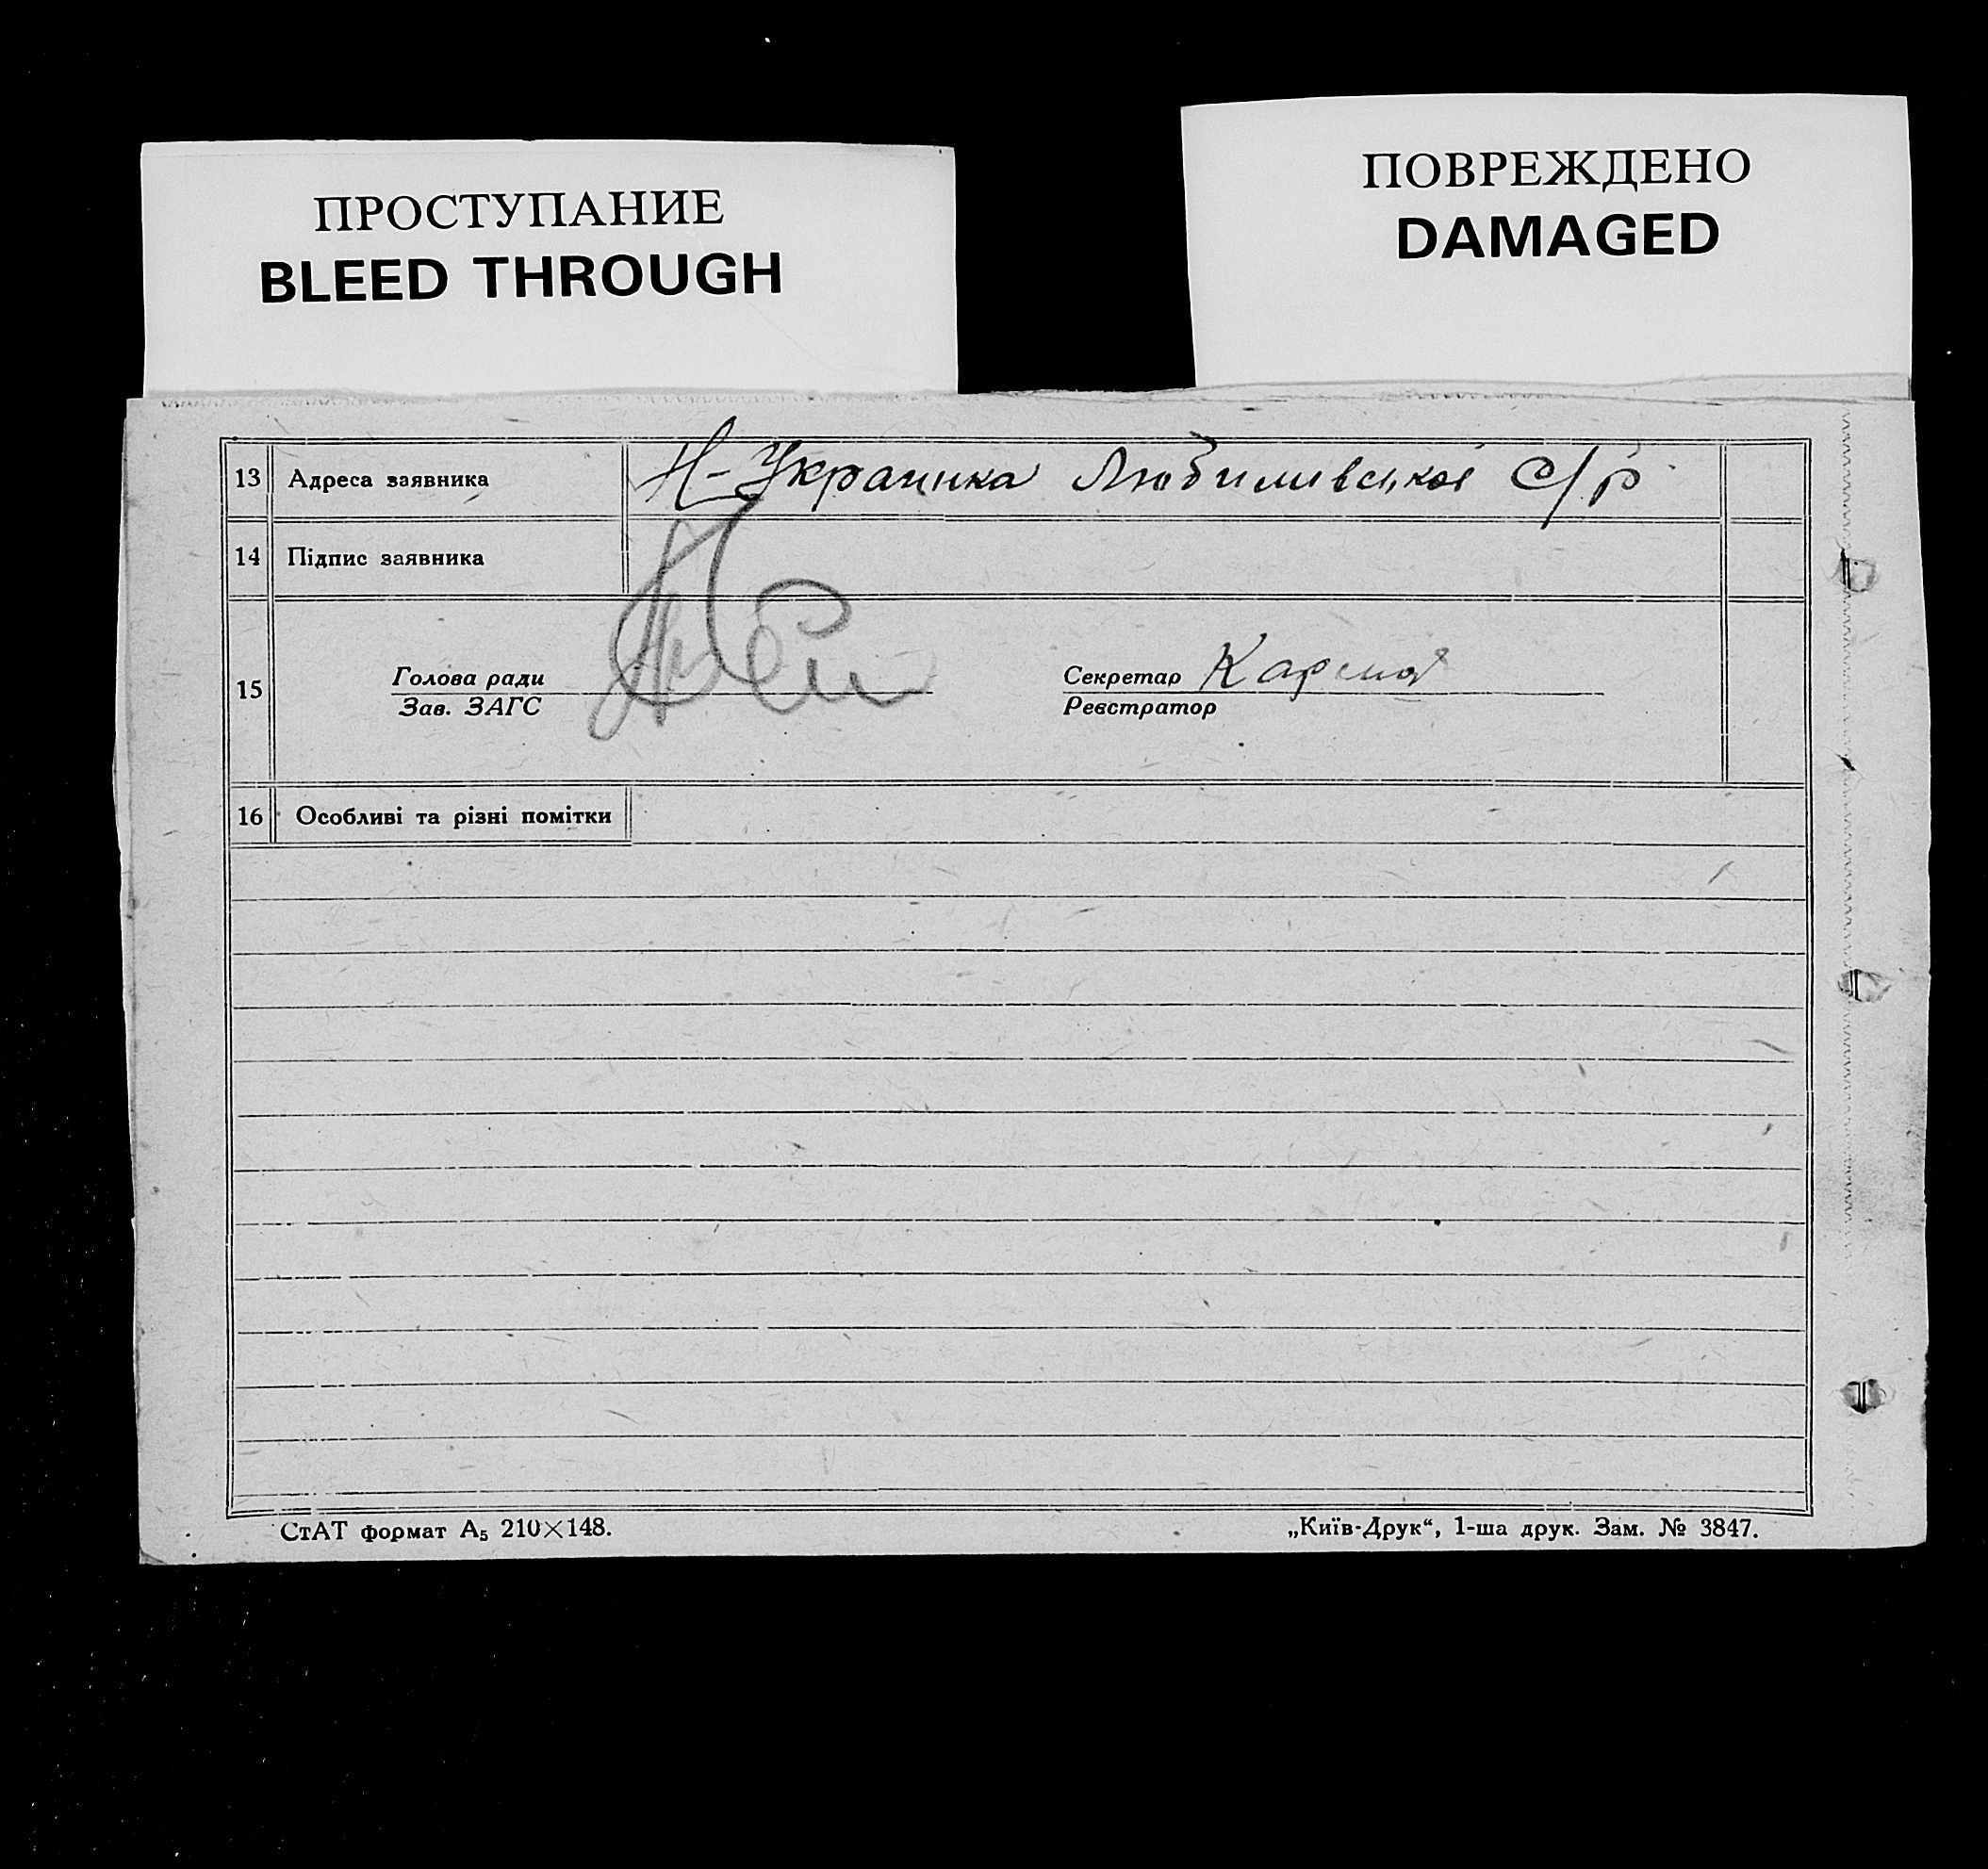 ПРОСТУПАНИЕ
BLEED THROUGH
ПОВРЕЖДЕНО
DAMAGED
13 Адреса заявника Н-Украинка Любимивської С/р
14 Підпис заявника
15 Голова ради
Зав. ЗАГС
Секретар
Реєстратор
16 Особливі та різні помітки
СтАТ формат А₅ 210×148.
„Київ-Друк“, 1-ша друк. Зам. № 3847.